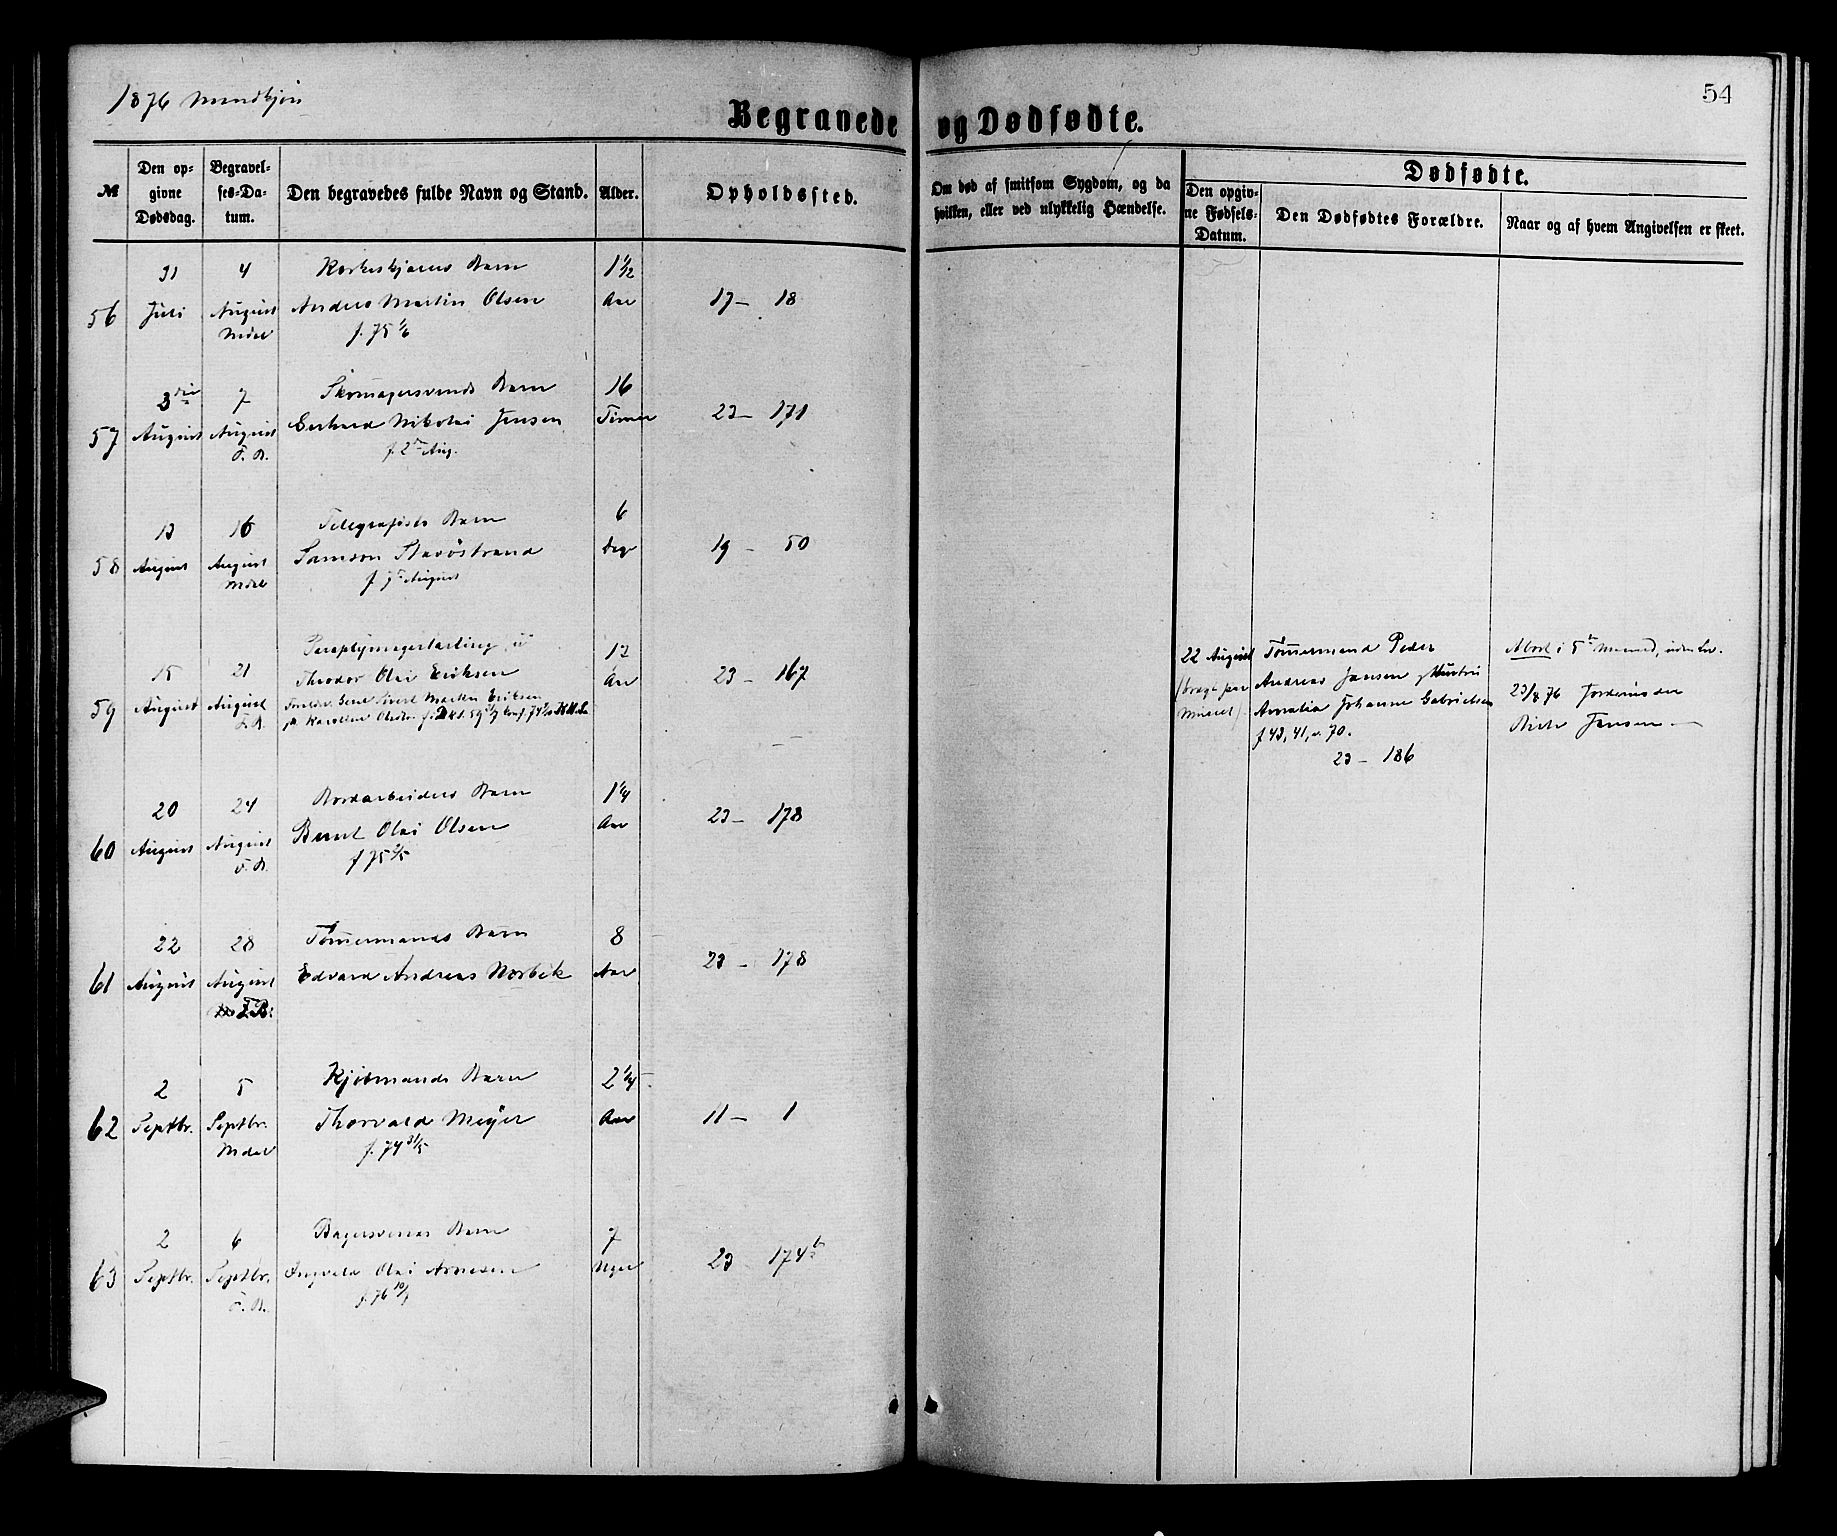 1876 Mandkjøn
54
Begravede og Dødfødte.
№
Den opgivne Dødsdag.
Begravelses-Datum.
Den begravedes fulde Navn og Stand.
Alder.
Opholdssted.
Om død af smitsom Sygdom, og da hvilken, eller ved ulykkelig Hændelse.
Dødfødte.
Den opgivne Fødsels-Datum.
Den Dødfødtes Forældre.
Naar og af hvem Angivelsen er skeet.
31 4 Barn 1 1/12
56 Juli August Anders Martin Olsen Aar 17 – 18
f. 75 1/6
3die 7 Skomagersvends Barn 16
57 August August Gerhard Nikolai Jensen Timer 23 – 171
F. B. f. 2 Aug.
13 16 Telegrafists Barn 6
58 August August Samson Dage 19 – 50
f. 7 August
15 21 17
59 August August Theodor Olai Eriksen Aar 23 – 167
F. B.
20 24 Bordarbeiders Barn 1 1/4
60 August August Bernt Olai Olsen Aar 23 – 178
F. B. f 75
22 28 Tømmermands Barn 8
61 August August Edvard Andreas Norbek Aar 23 – 178
F. B.
2 5 Kjøbmands Barn 2 1/4
62 Septbr. Septbr. Thorvald Meyer Aar 11 – 1
f. 74 31/5
2 6 Bagersvends Barn 7
63 Septbr. Septbr. Ingvald Olai Arnesen Uger 23 174 b
F. B. f. 76
22 August Tømmermand Peder
Andreas Jansen Hustru
Amalia Johanne Gabrielsen
f 43, 41, v. 70.
23 – 186
Abort i 5 Maaned,
23/8 76 Jordemoder
Jansen